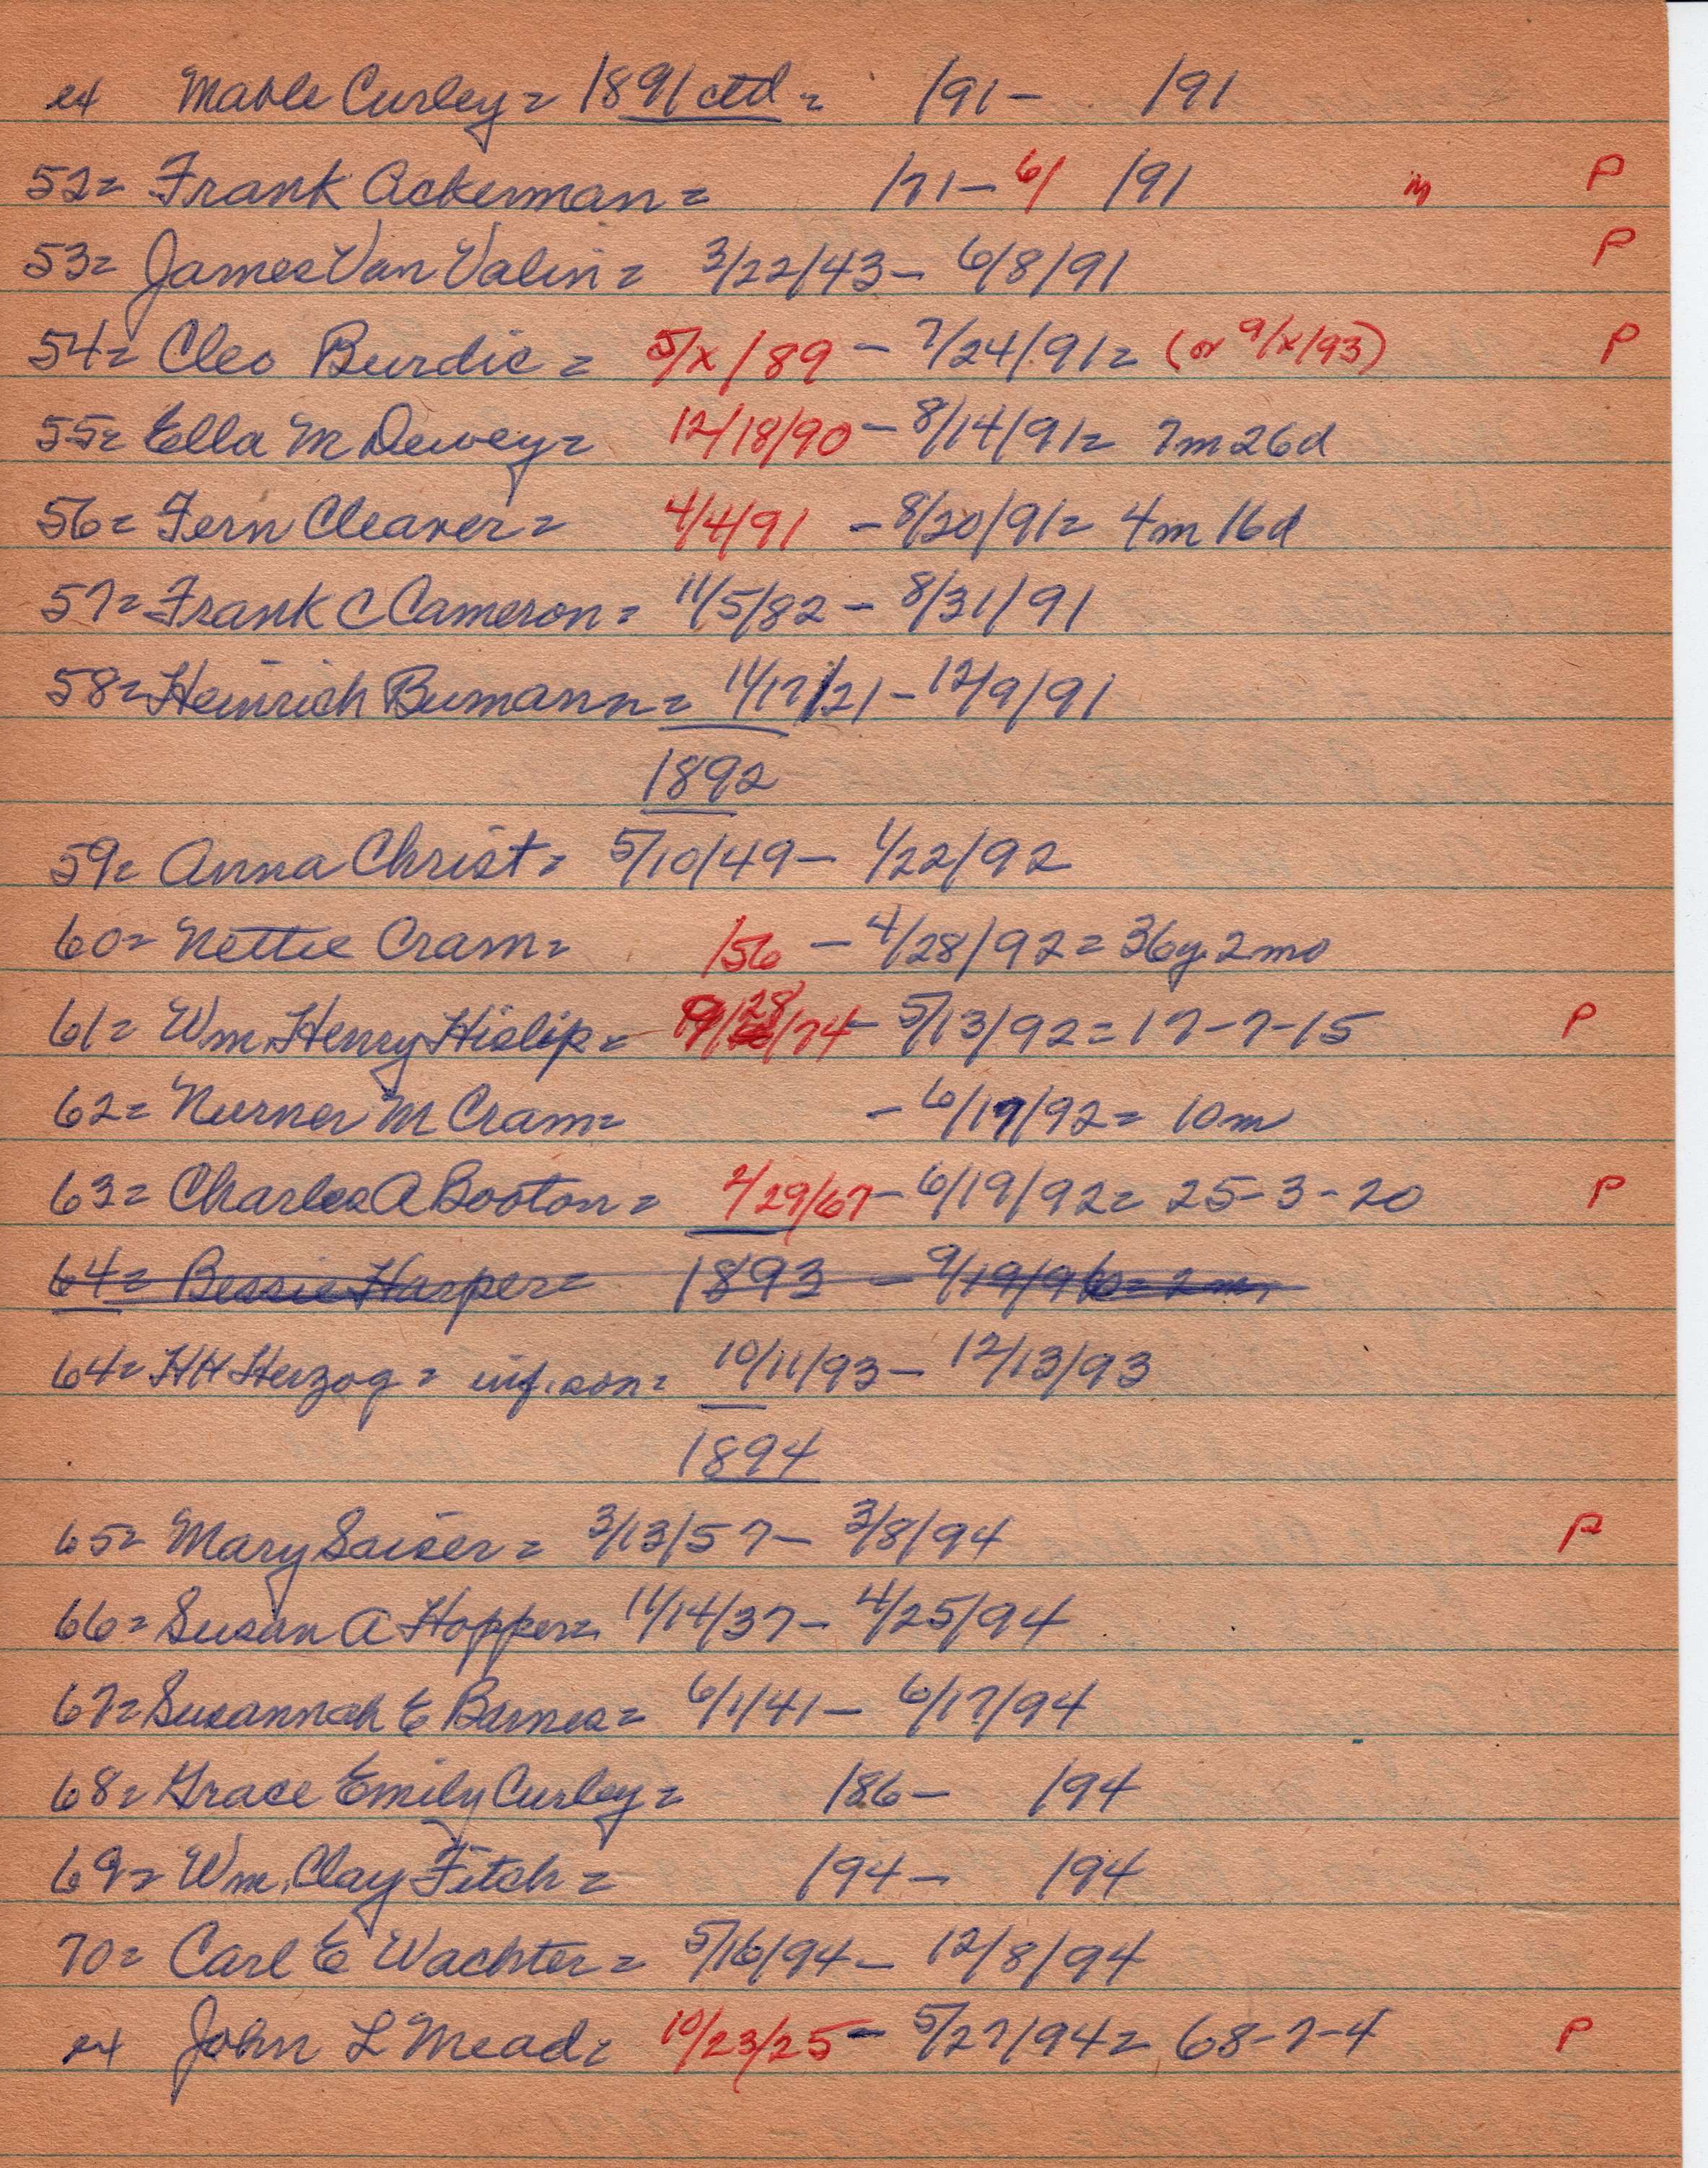 ex Mable Curley = 1891 ctd = /91 - /91
52 = Frank Ackerman = /71 - 6/ /91 m P
53 = James Van Valin = 3/22/43 - 6/8/91 P
54 = Cleo Burdic = 5/x/89 - 7/24/91 = (or 9/x/93) P
55 = Ella M Dewey = 12/18/90 - 8/14/91 = 7m 26d
56 = Fern Cleaver = 4/4/91 - 8/20/91 = 4m 16d
57 = Frank C Cameron = 11/5/82 - 8/31/91
58 = Heinrich Bumann = 11/17/21 - 12/9/91
1892
59 = Anna Christ = 5/10/49 - 1/22/92
60 = Nettie Cram = /56 - 4/28/92 = 36y. 2mo
61 = Wm. Henry Hislip = 9/28/74 - 5/13/92 = 17-7-15 P
62 = M Cram = - 6/17/92 = 10m
63 = Charles A Booton = 2/29/67 - 6/19/92 = 25-3-20 P
64 = Bessie Harper = 1893 - 9/19/96 = 2m.
64 = HH Herzog = inf. son = 10/11/93 - 12/13/93
1894
65 = Mary Saiser = 3/13/57 - 3/8/94 P
66 = Susan A Hopper = 11/14/37 - 4/25/94
67 = Susannah E Barnes = 6/1/41 - 6/17/94
68 = Grace Emily Curley = /86 - /94
69 = Wm. Clay Fitch = /94 - /94
70 = Carl E Wachter = 5/16/94 - 12/8/94
ex John L Mead = 10/23/25 - 5/27/94 = 68-7-4 P